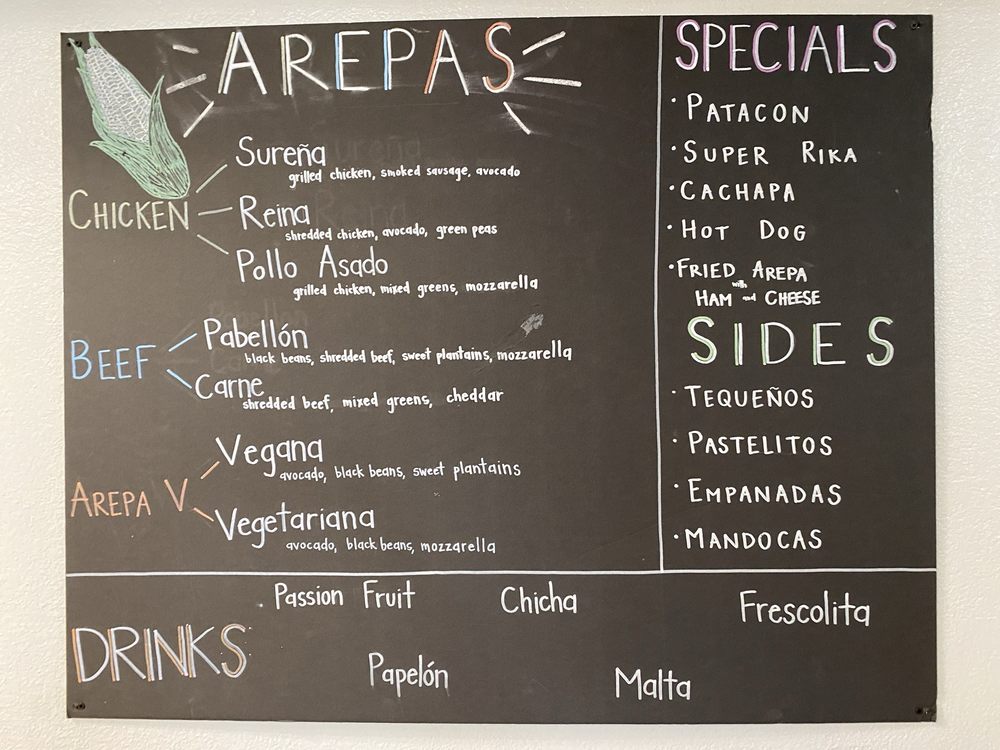 AREPAS
CHICKEN
Sureña
grilled chicken, smoked sausage, avocado
Reina
shredded chicken, avocado, green peas
Pollo Asado
grilled chicken, mixed greens, mozzarella
BEEF
Pabellón
black beans, shredded beef, sweet plantains, mozzarella
Carne
shredded beef, mixed greens, cheddar
AREPA V
Vegana
avocado, black beans, sweet plantains
Vegetariana
avocado, black beans, mozzarella
SPECIALS
· PATACON
· SUPER RIKA
· CACHAPA
· HOT DOG
· FRIED AREPA
with
HAM and CHEESE
SIDES
· TEQUEÑOS
· PASTELITOS
· EMPANADAS
· MANDOCAS
DRINKS
Passion Fruit
Chicha
Frescolita
Papelón
Malta